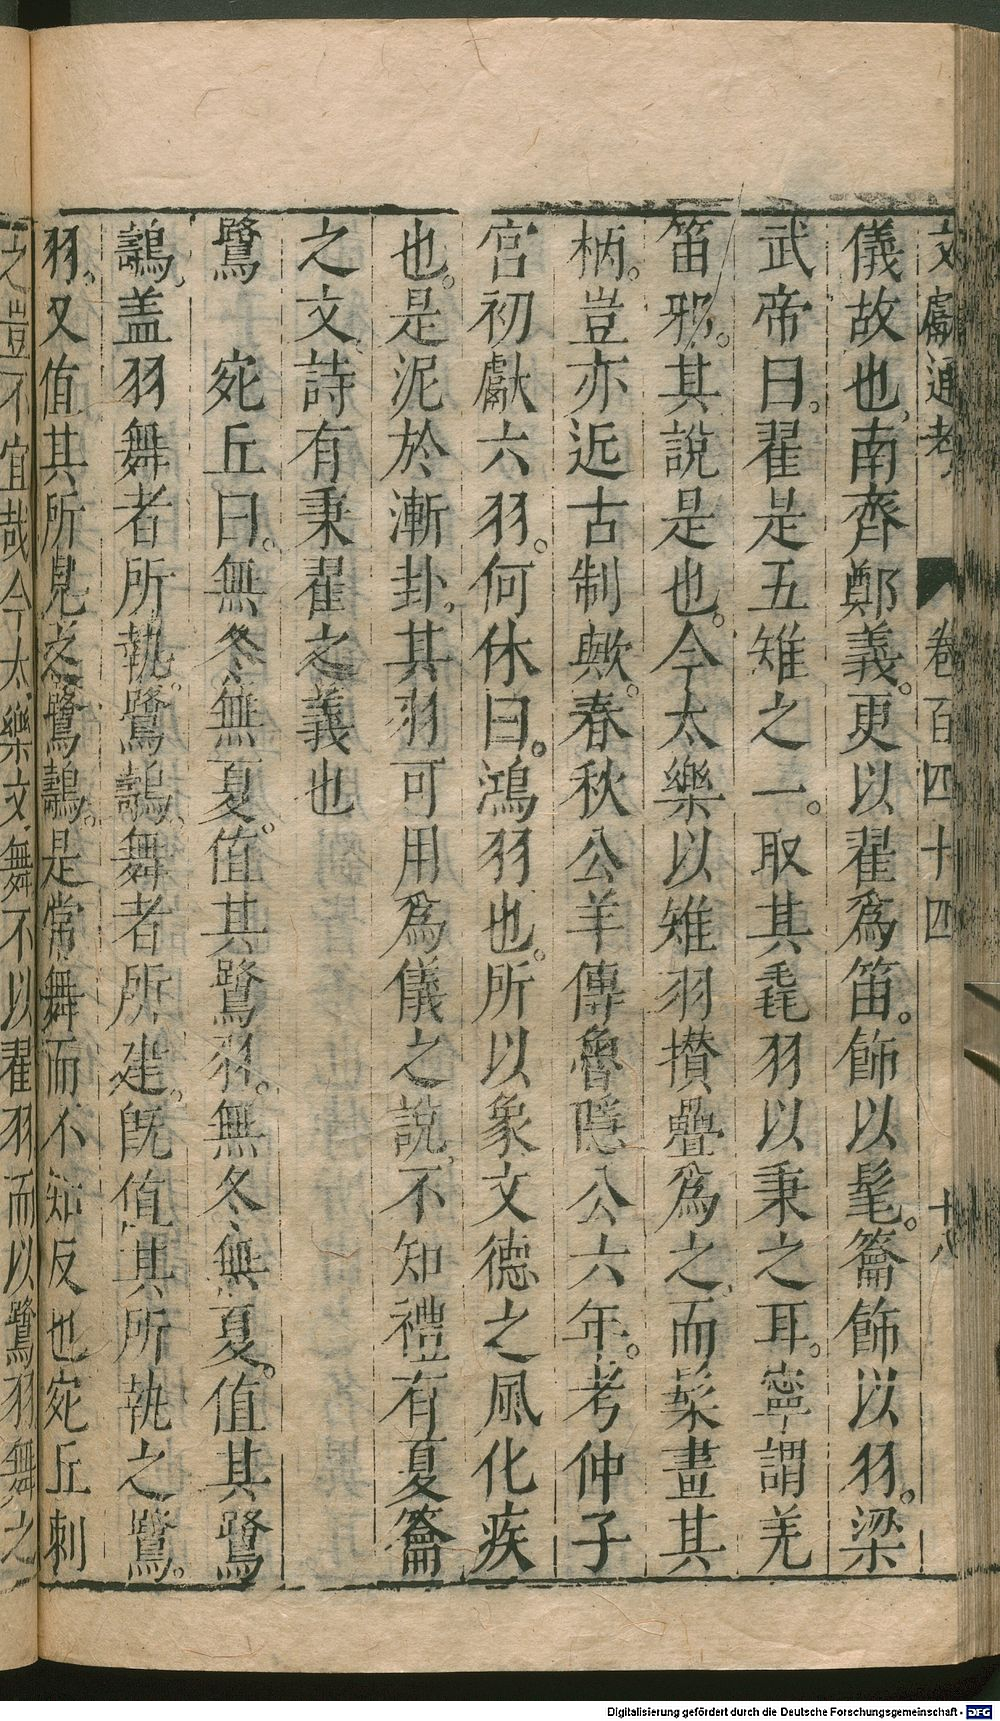 文獻通考 卷百四十四 十八
儀故也南齊鄭義。更以翟爲笛。飾以髦。籥飾以羽。梁
武帝曰。翟是五雉之一。取其毛羽以秉之耳。寧謂羌
笛邪。其說是也。今太樂以雉羽攅疊爲之。而髹畫其
柄。豈亦近古制歟。春秋公羊傳魯隱公六年。考仲子
宮初獻六羽。何休曰。鴻羽也。所以象文德之風化疾
也。是泥於漸卦。其羽可用爲儀之說。不知禮有夏籥
之文。詩有秉翟之義也
鷺 宛丘曰。無冬無夏。值其鷺羽。無冬無夏。值其鷺
翿。盖羽舞者所執。鷺翿舞者所建。旣值其所執之鷺。
羽。又值其所見之鷺翿。是常舞而不知反也宛丘刺
之豈不宜哉今太樂文舞不以翟羽而以鷺羽舞之
Digitalisierung gefördert durch die Deutsche Forschungsgemeinschaft - DFG